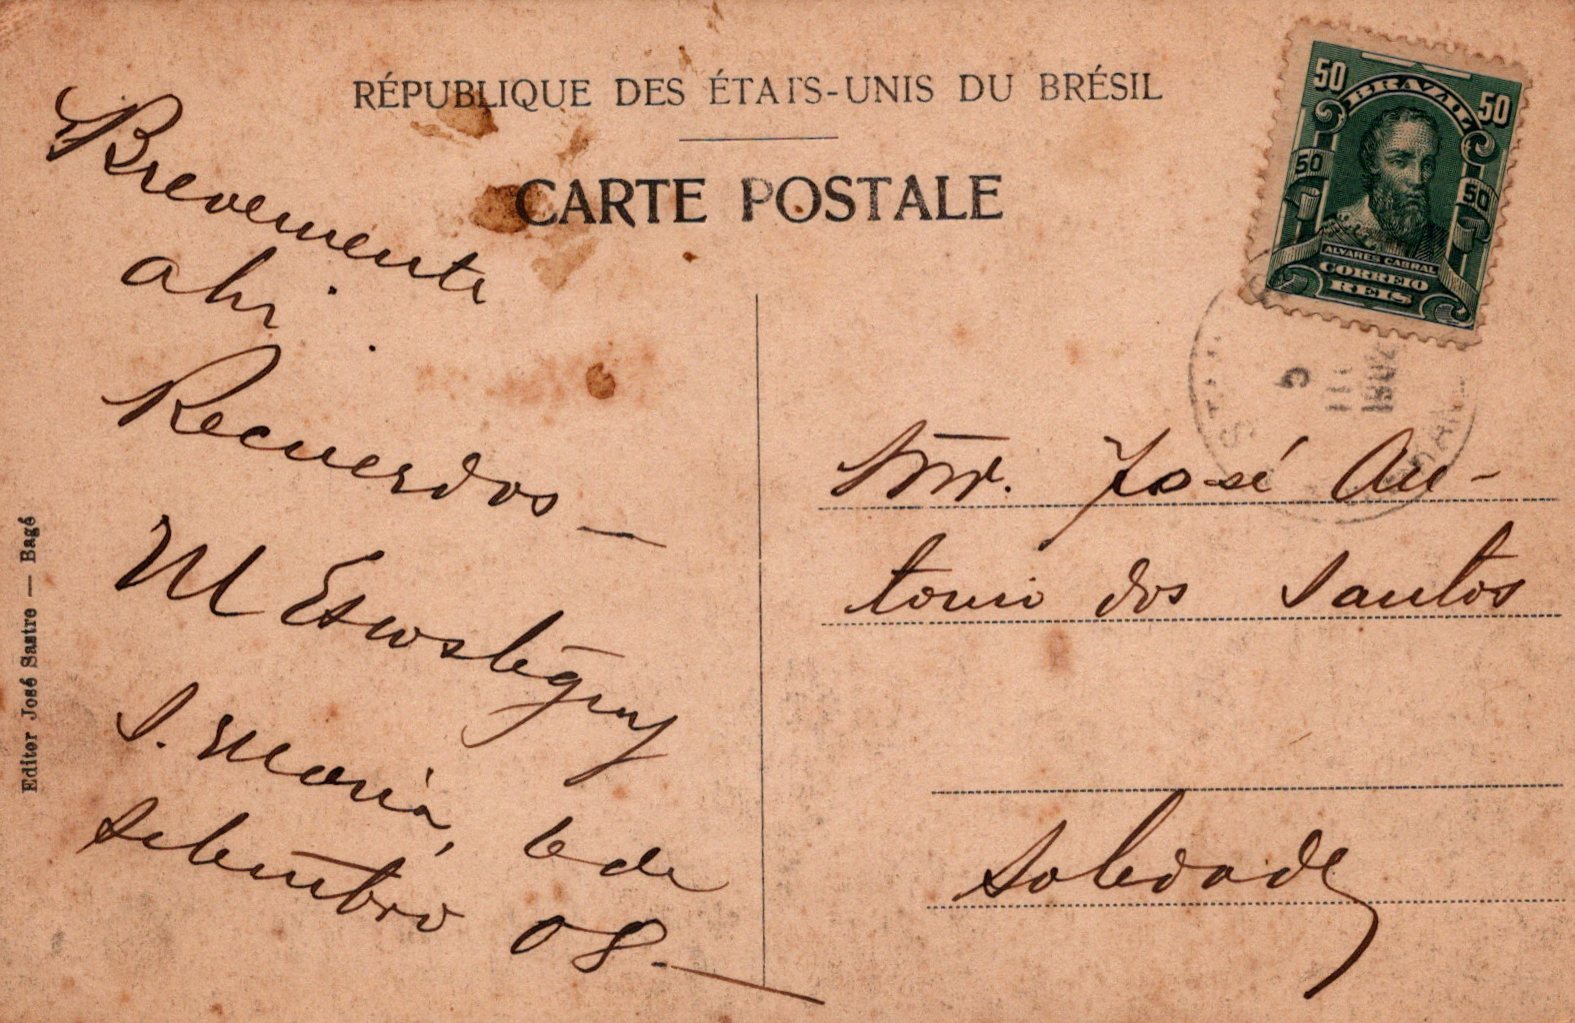 RÉPUBLIQUE DES ÉTATS-UNIS DU BRÉSIL
CARTE POSTALE
Brevemente
ahi.
Recuerdos —
M
S. Maria, 6 de
setembro 08. —
Editor José Sastre — Bagé
50 BRAZIL 50
50 50
ALVARES CABRAL
CORREIO
REIS
5
Snr. José An-
tonio dos Santos
Soledade